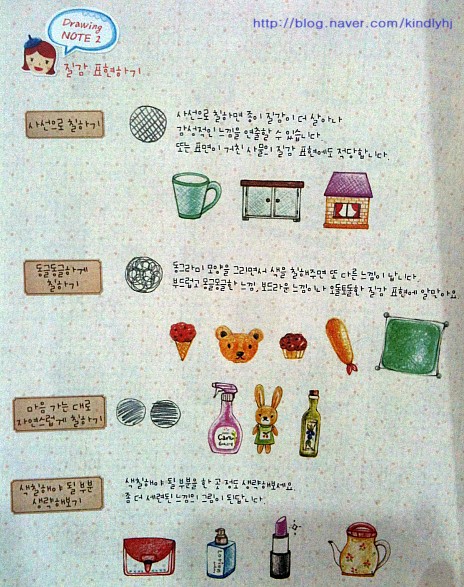 http://blog.naver.com/kindlyhj
Drawing
NOTE 2
질감 표현하기
사선으로 칠하기
사선으로 칠하면 종이 질감이 더 살아나
감성적인 느낌을 연출할 수 있습니다.
또는 표면이 거친 사물의 질감 표현에도 적당합니다.
동글동글하게
칠하기
동그라미 모양을 그리면서 색을 칠해주면 또 다른 느낌이 납니다.
부드럽고 몽글몽글한 느낌, 보드라운 느낌이나 오돌토돌한 질감 표현에 알맞아요.
마음 가는 대로
자연스럽게 칠하기
색칠해야 될 부분
생략해보기
색칠해야 될 부분을 한 곳 정도 생략해보세요.
좀 더 세련된 느낌의 그림이 된답니다.